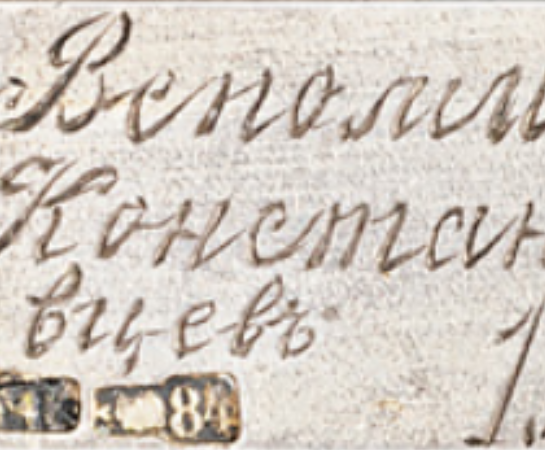 Вспомин
Констан
вцевъ
84